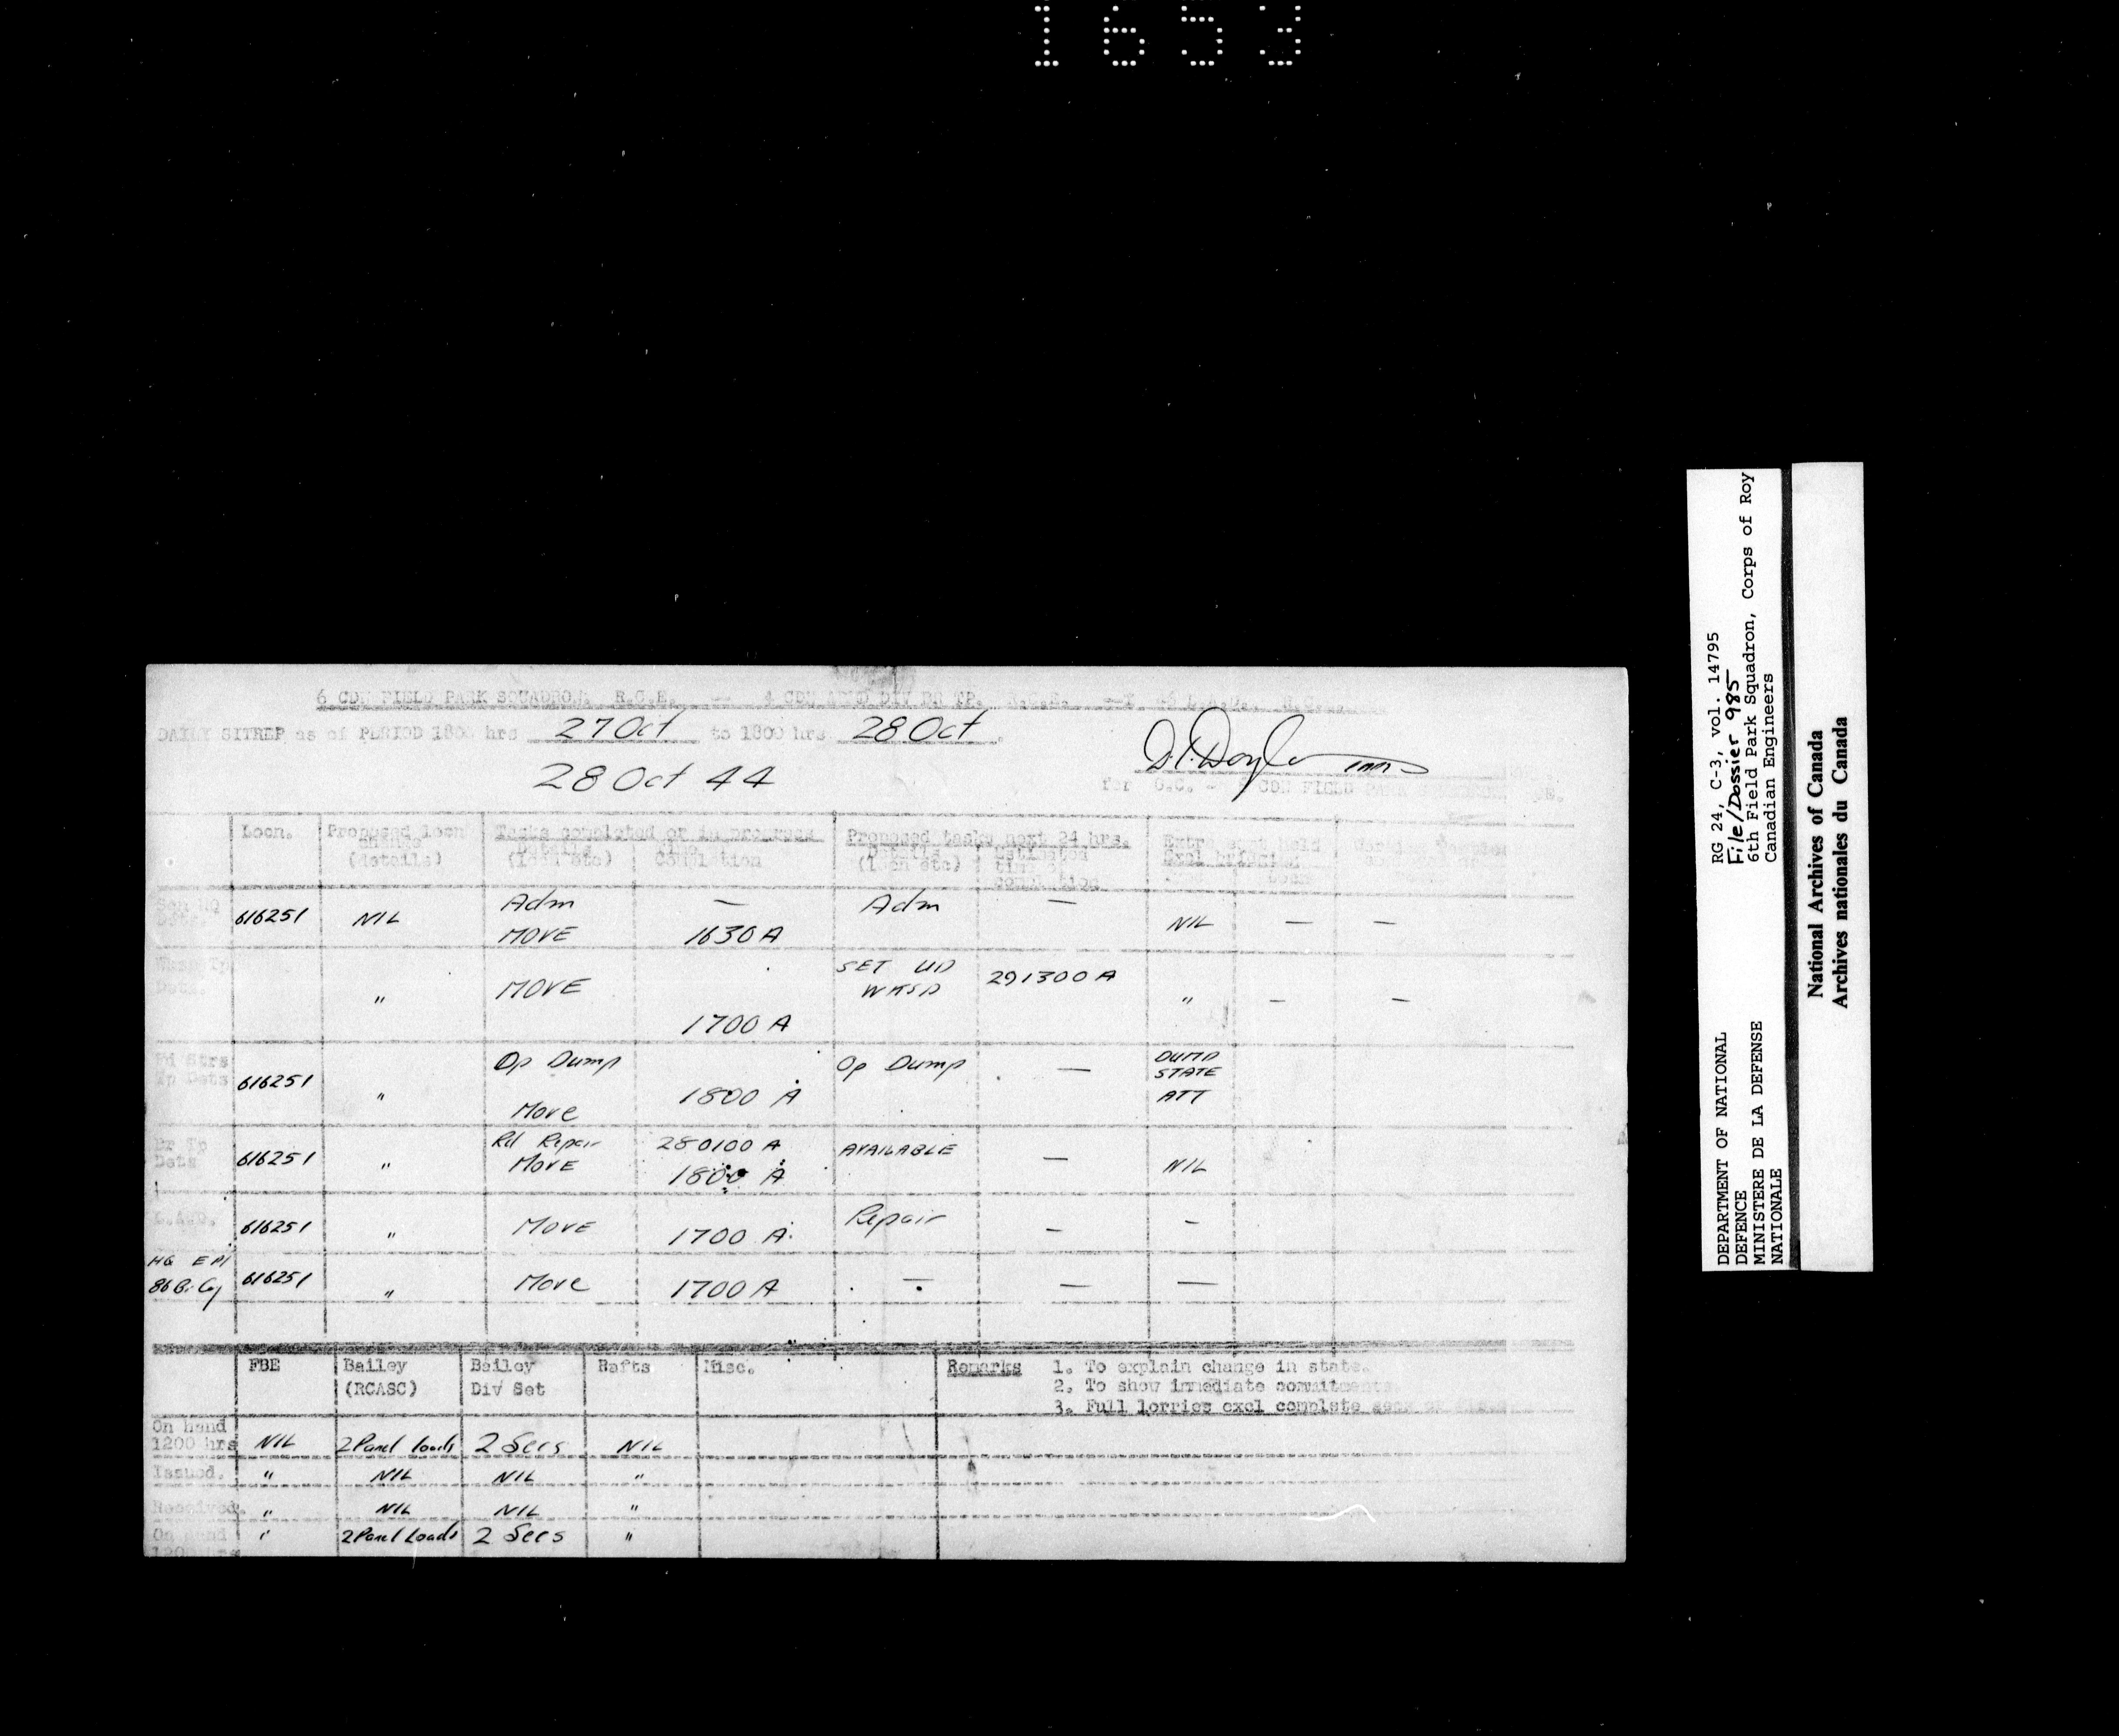 1653
6 CDN FIELD PARK SQUADRON, R.C.E. -- 4 CDN ARMD DIV BR TP. R.C.E.
DAILY SITREP as of PERIOD 1800 hrs 27 Oct to 1800 hrs 28 Oct.
28 Oct 44
for O.C. - 6 CDN FIELD PARK SQUADRON
Locn. Proposed locn change (details) Tasks completed or in progress Proposed tasks next 24 hrs.
Details (locn etc) Time Completion Details (locn etc) Estimated time completion
Sqn HQ Dets. 616251 NIL Adm — Adm — NIL — —
MOVE 1630 A
Wksp Tp Dets. " MOVE 1700 A SET UP WKSP 291300 A " — —
Fd Strs Tp Dets 616251 " Op Dump Op Dump — DUMP STATE ATT
Move 1800 A
Br Tp Dets 616251 " Rd Repair 280100 A AVAILABLE — NIL
MOVE 1800 A
L.A.D. 616251 " MOVE 1700 A Repair — —
HQ 86 Br Coy 616251 " Move 1700 A — — —
FBE Bailey (RCASC) Bailey Div Set Rafts Misc. Remarks 1. To explain change in state.
2. To show immediate commitments
3. Full lorries excl complete
On hand 1200 hrs NIL 2 Panel loads 2 Secs NIL
Issued. " NIL NIL "
Received. " NIL NIL "
On hand 1200 hrs " 2 Panel Loads 2 Secs "
RG 24, C-3, vol. 14795
File/Dossier 985
6th Field Park Squadron, Corps of Roy
Canadian Engineers
DEPARTMENT OF NATIONAL
DEFENCE
MINISTERE DE LA DEFENSE
NATIONALE
National Archives of Canada
Archives nationales du Canada